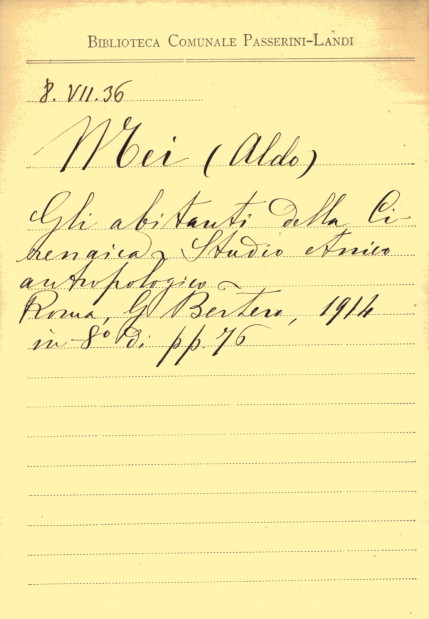 BIBLIOTECA COMUNALE PASSERINI-LANDI
8. VII. 36
Mei (Aldo)
Gli abitanti della Ci-
renaica ~ Studio etnico
antropologico ~
Roma, G Bertero, 1914
in 8° di pp. 76